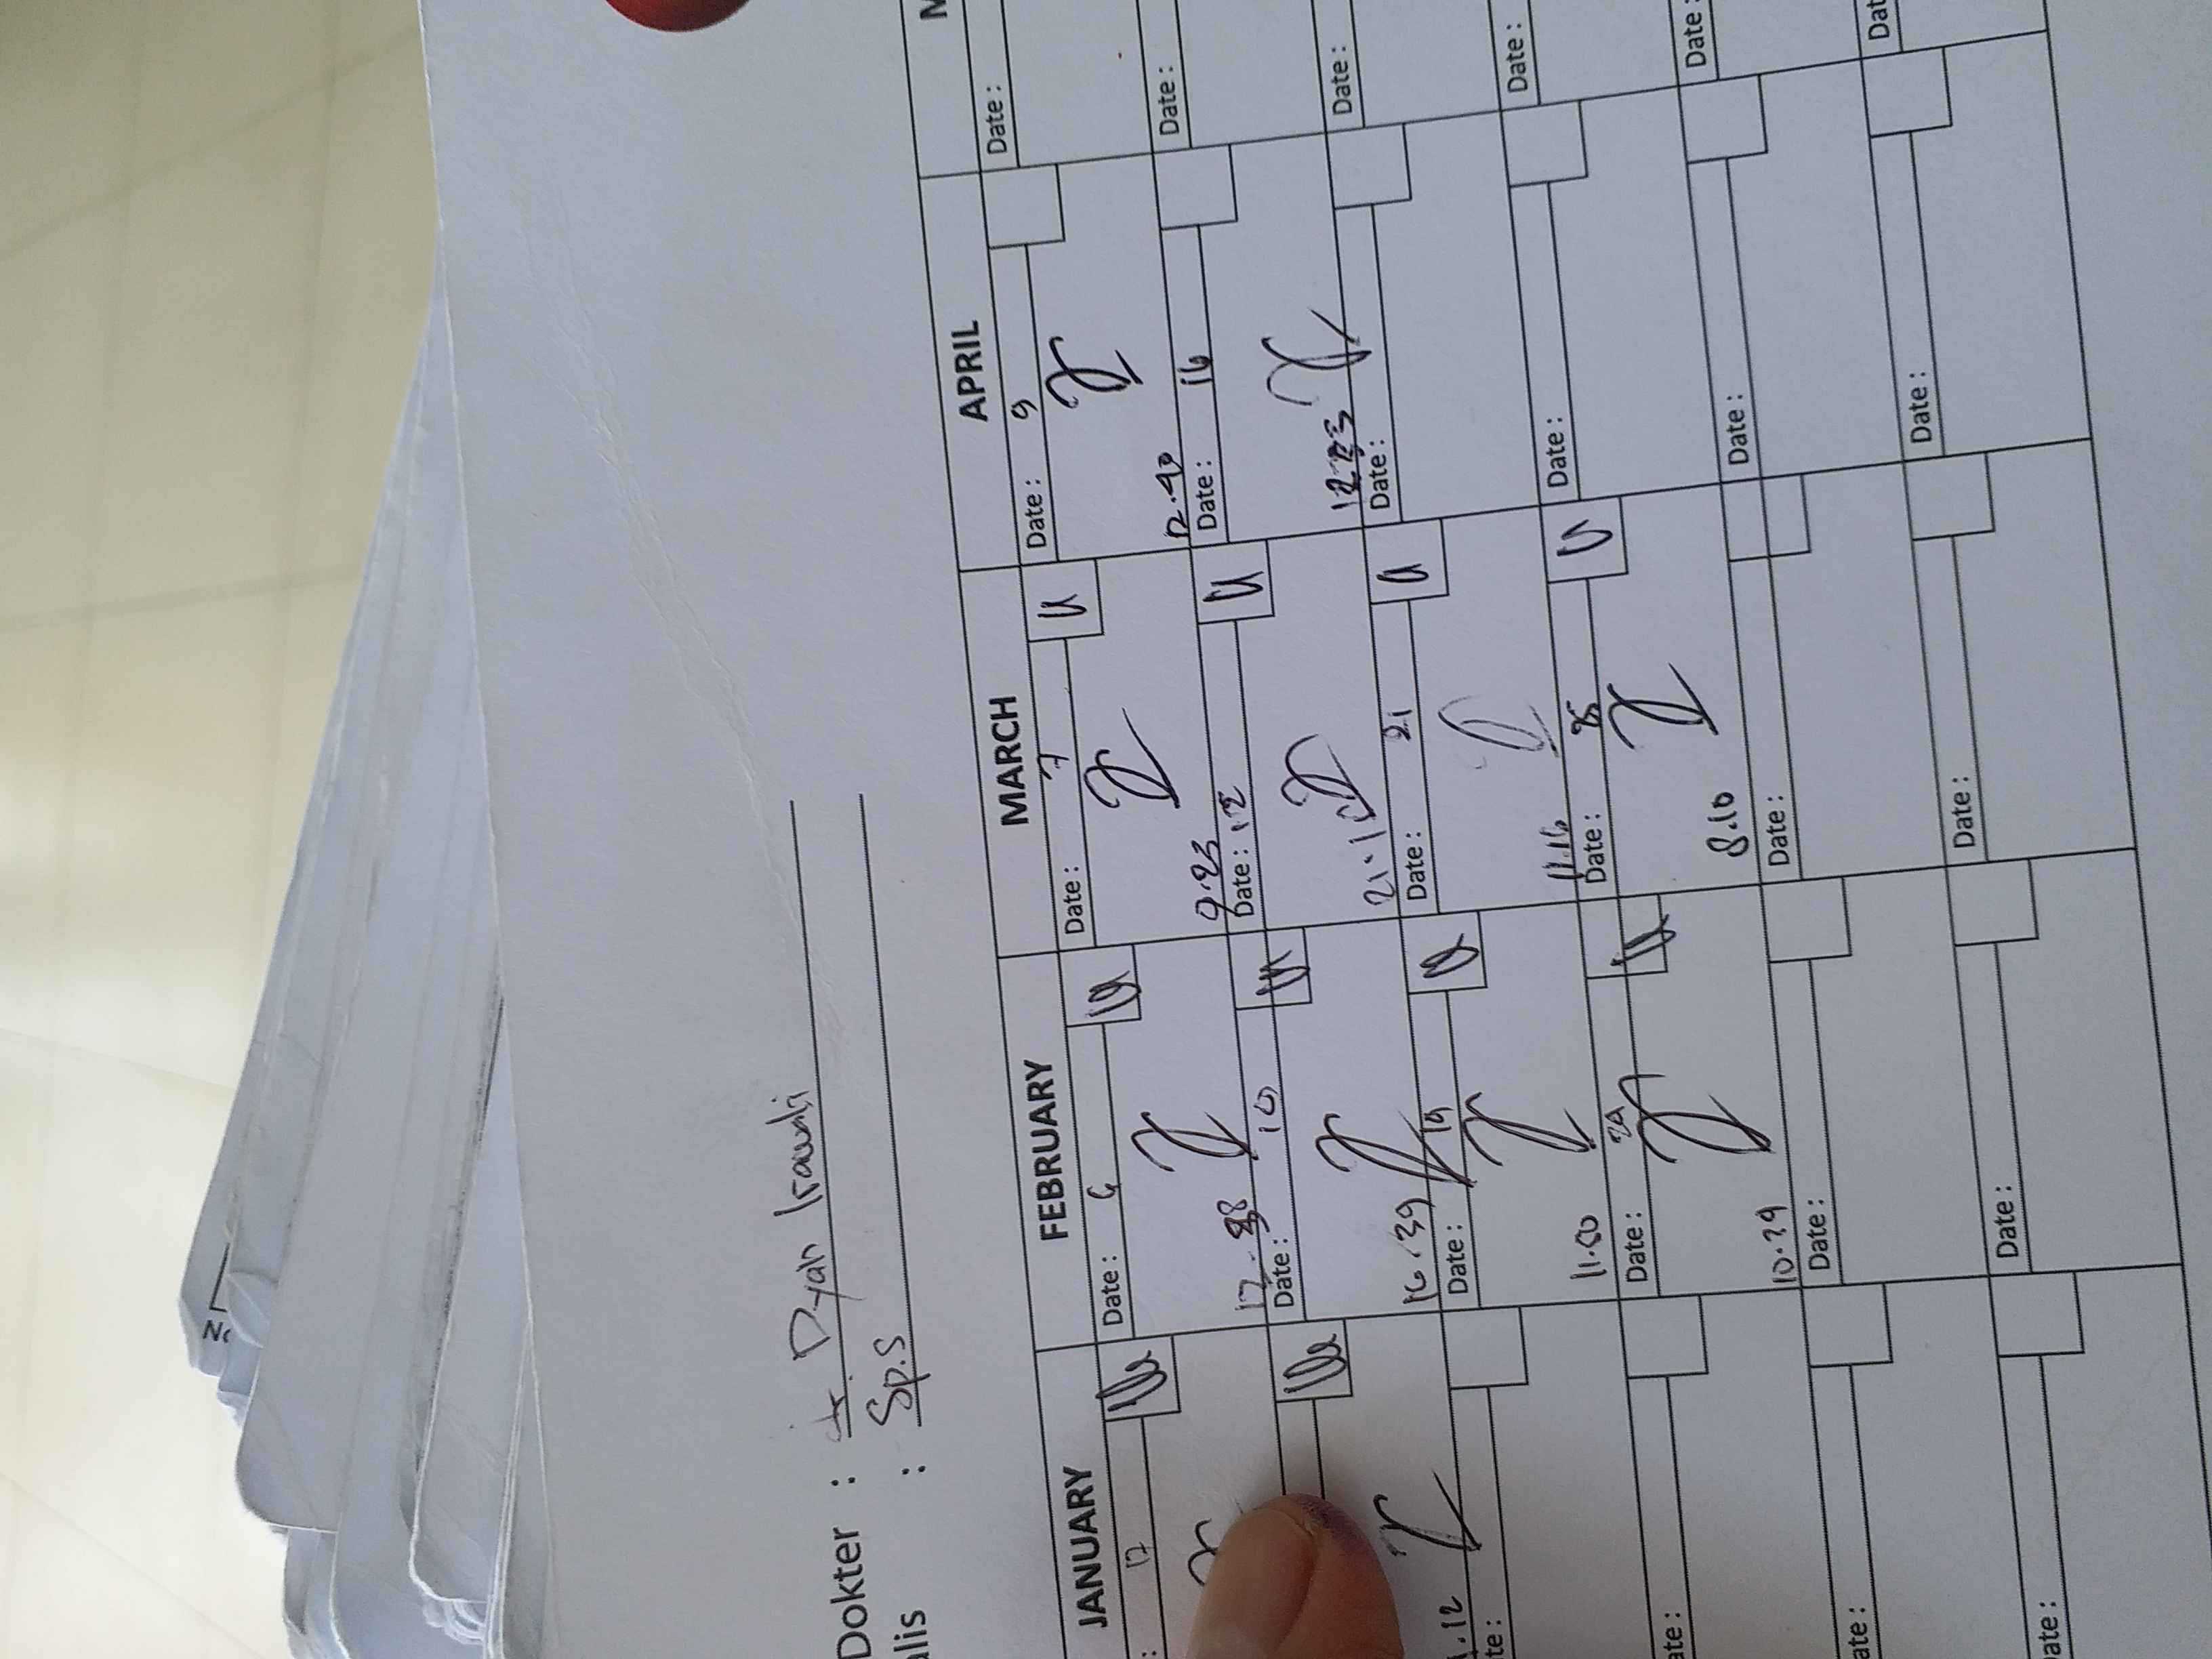 Dokter : dr. Dyah Irawati
alis : Sp.S
JANUARY FEBRUARY MARCH APRIL M
: 17 Date : 6 Date : 7 Date : 9 Date :
9.23 12.40
Date : 10 Date : 12 Date : 16 Date :
.12 16.39
te: Date : 19 Date : 21 Date : Date :
11.00 11.16
ate : Date : 29 Date : Date : Date :
10.39 8.10
ate : Date : Date : Date : Date :
ate : Date : Date : Date : Dat
No